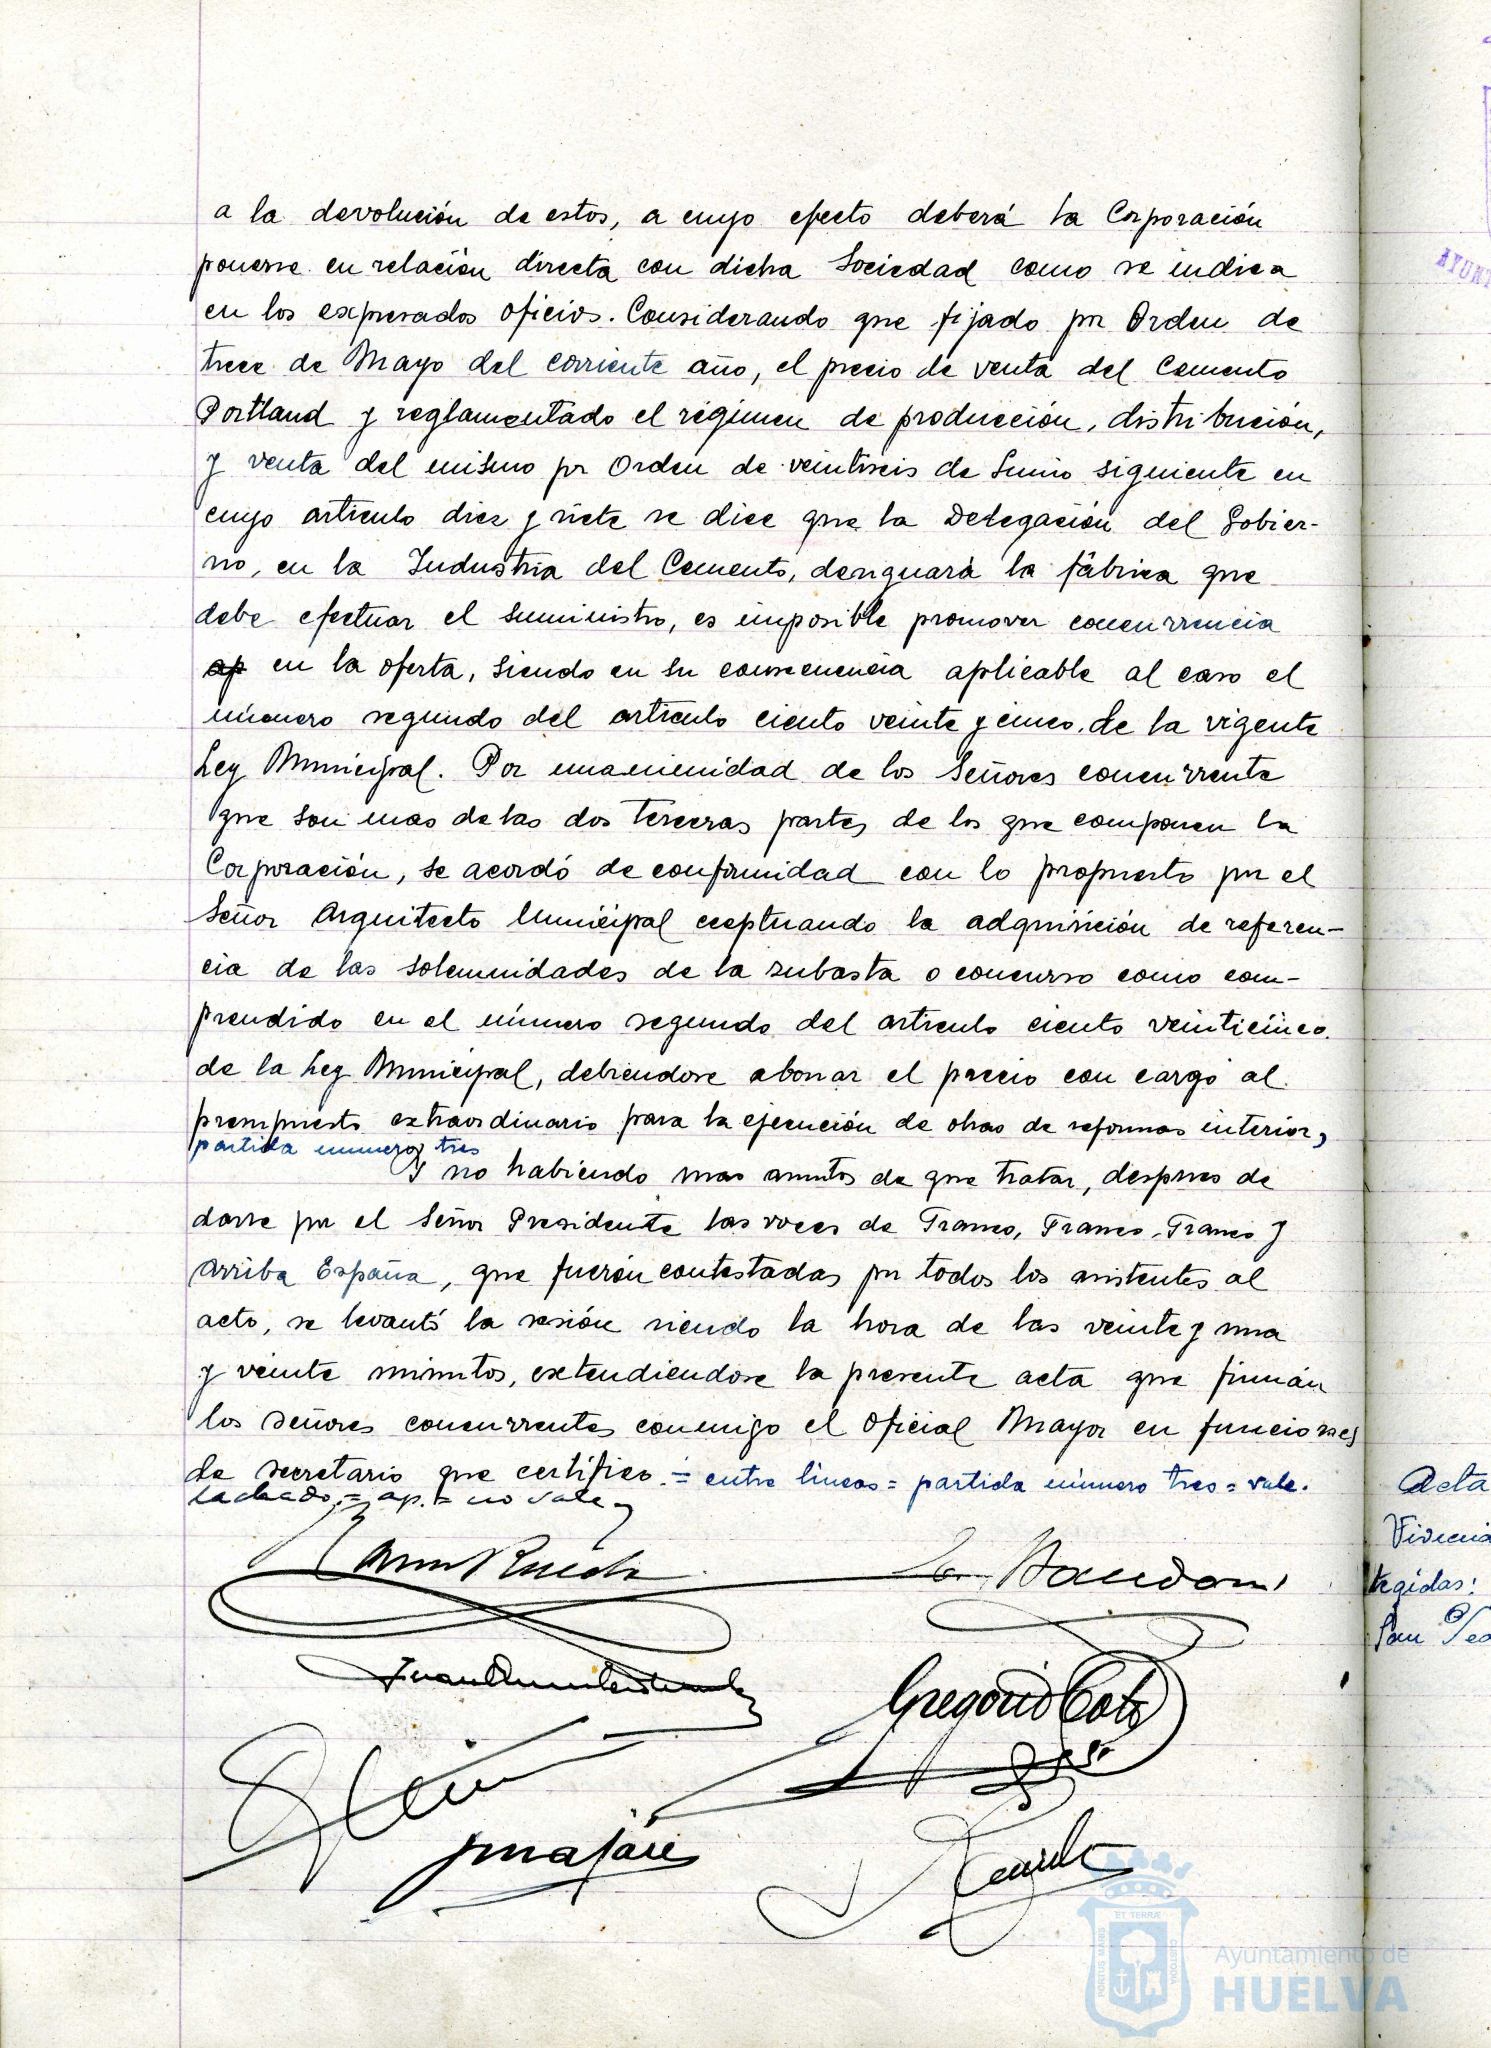 a la devolución de estos, a cuyo efecto deberá la Corporación
ponerse en relación directa con dicha Sociedad como se indica
en los expresados oficios. Considerando que fijado por Orden de
trece de Mayo del corriente año, el precio de venta del Cemento
Portland y reglamentado el régimen de producción, distribución,
y venta del mismo por Orden de veintiseis de Junio siguiente en
cuyo articulo diez y siete se dice que la Delegación del Gobier-
no, en la Industria del Cemento, designará la fábrica que
debe efectuar el suministro, es imposible promover concurrencia
ap en la oferta, siendo en su consecuencia aplicable al caso el
número segundo del artículo ciento veinte y cinco de la vigente
Ley Municipal. Por unanimidad de los Señores concurrente
que son mas de las dos terceras partes de los que componen la
Corporación, se acordó de conformidad con lo propuesto por el
Señor Arquitecto Municipal ceeptuando la adquisición de referen-
cia de las solemnidades de la subasta o concurso como com-
prendido en el número segundo del articulo ciento veinticinco
de la Ley Municipal, debiendose abonar el precio con cargo al
presupuesto extraordinario para la ejecución de obras de reformas interior,
partida numero tres
Y no habiendo mas asuntos de que tratar, despues de
darse por el Señor Presidente las voces de Franco, Franco, Franco y
Arriba España, que fuerón contestadas por todos los asistentes al
acto, se levantó la sesión siendo la hora de las veinte y una
y veinte minutos, extendiendose la presente acta que firmán
los señores concurrentes conmigo el Oficial Mayor en funciones
de secretario que certifico.= entre lineas = partida número tres = vale.
tachado = ap. = no vale
Gregorio Coto
AYUNT
Acta
Viviend
tegidas:
San Ped
PORTUS MARIS
ET TERRÆ
CUSTODIA
Ayuntamiento de
HUELVA